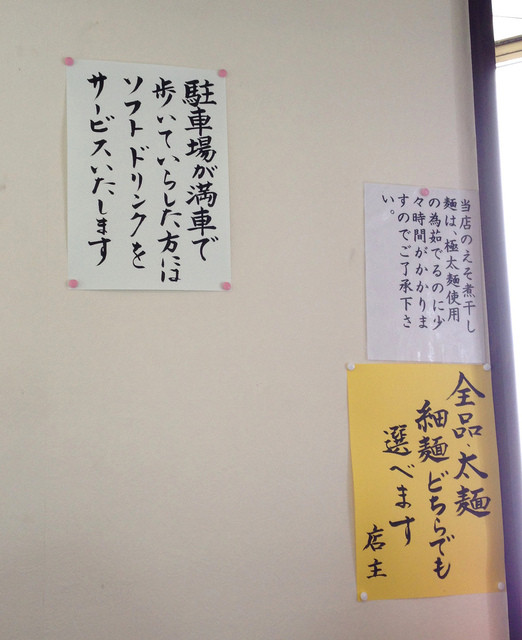 駐車場が満車で
歩いていらした方には
ソフトドリンクを
サービスいたします
当店のえそ煮干し
麺は、極太麺使用
の為茹でるのに少
々時間がかかりま
すのでご了承下さ
い。
全品、太麺
細麺どちらでも
選べます
店主